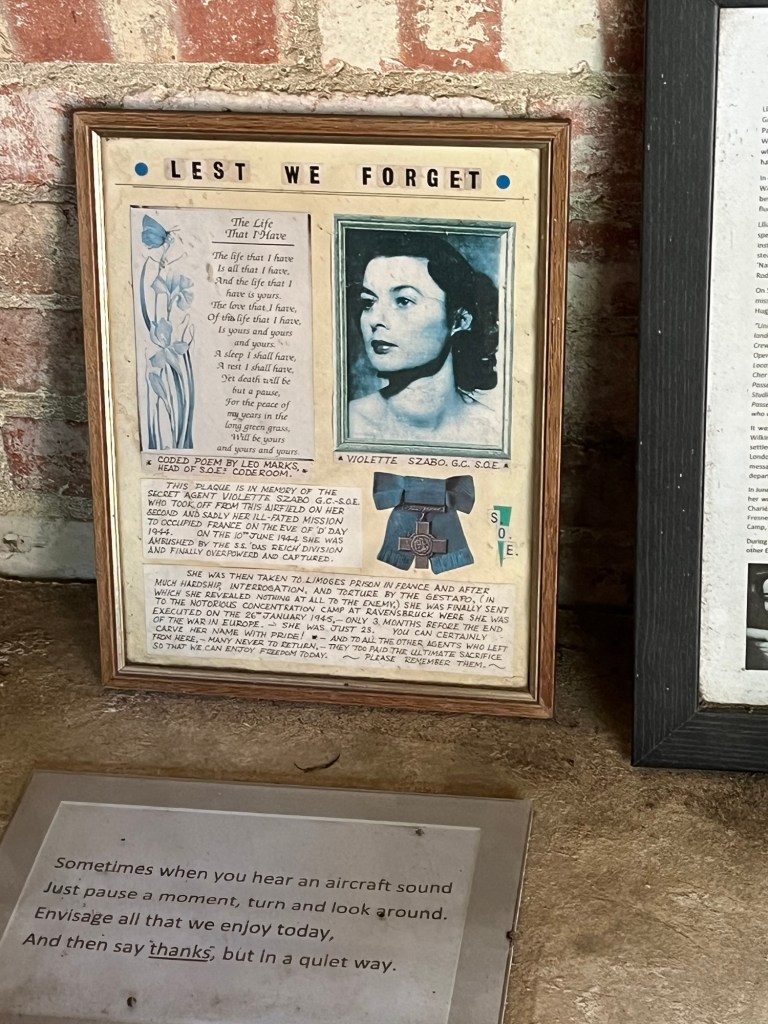 LEST WE FORGET
The Life
That I Have
The life that I have
Is all that I have,
And the life that I
have is yours.
The love that I have,
Of the life that I have,
Is yours and yours
and yours.
A sleep I shall have,
A rest I shall have,
Yet death will be
but a pause,
For the peace of
my years in the
long green grass,
Will be yours
and yours and yours
CODED POEM BY LEO MARKS,
HEAD OF S.O.E.s CODEROOM.
VIOLETTE SZABO. G.C. S.O.E.
THIS PLAQUE IS IN MEMORY OF THE
SECRET AGENT VIOLETTE SZABO G.C.-S.O.E.
WHO TOOK OFF FROM THIS AIRFIELD ON HER
SECOND AND SADLY HER ILL-FATED MISSION
TO OCCUPIED FRANCE ON THE EVE OF 'D' DAY
1944. ON THE 10TH JUNE 1944 SHE WAS
AMBUSHED BY THE S.S. 'DAS REICH' DIVISION
AND FINALLY OVERPOWERD AND CAPTURED.
S.
O.
E.
SHE WAS THEN TAKEN TO LIMOGES PRISON IN FRANCE AND AFTER
MUCH HARDSHIP, INTERROGATION, AND TORTURE BY THE GESTAPO, (IN
WHICH SHE REVEALED NOTHING AT ALL TO THE ENEMY,) SHE WAS FINALLY SENT
TO THE NOTORIOUS CONCENTRATION CAMP AT RAVENSBRUCK WERE SHE WAS
EXECUTED ON THE 26TH JANUARY 1945,- ONLY 3 MONTHS BEFORE THE END
OF THE WAR IN EUROPE. - SHE WAS JUST 23. YOU CAN CERTAINLY
CARVE HER NAME WITH PRIDE! - AND TO ALL THE OTHER AGENTS WHO LEFT
FROM HERE, - MANY NEVER TO RETURN, - THEY TOO PAID THE ULTIMATE SACRIFICE
SO THAT WE CAN ENJOY FREEDOM TODAY. ~ PLEASE REMEMBER THEM. ~
Sometimes when you hear an aircraft sound
Just pause a moment, turn and look around.
Envisage all that we enjoy today,
And then say thanks, but in a quiet way.